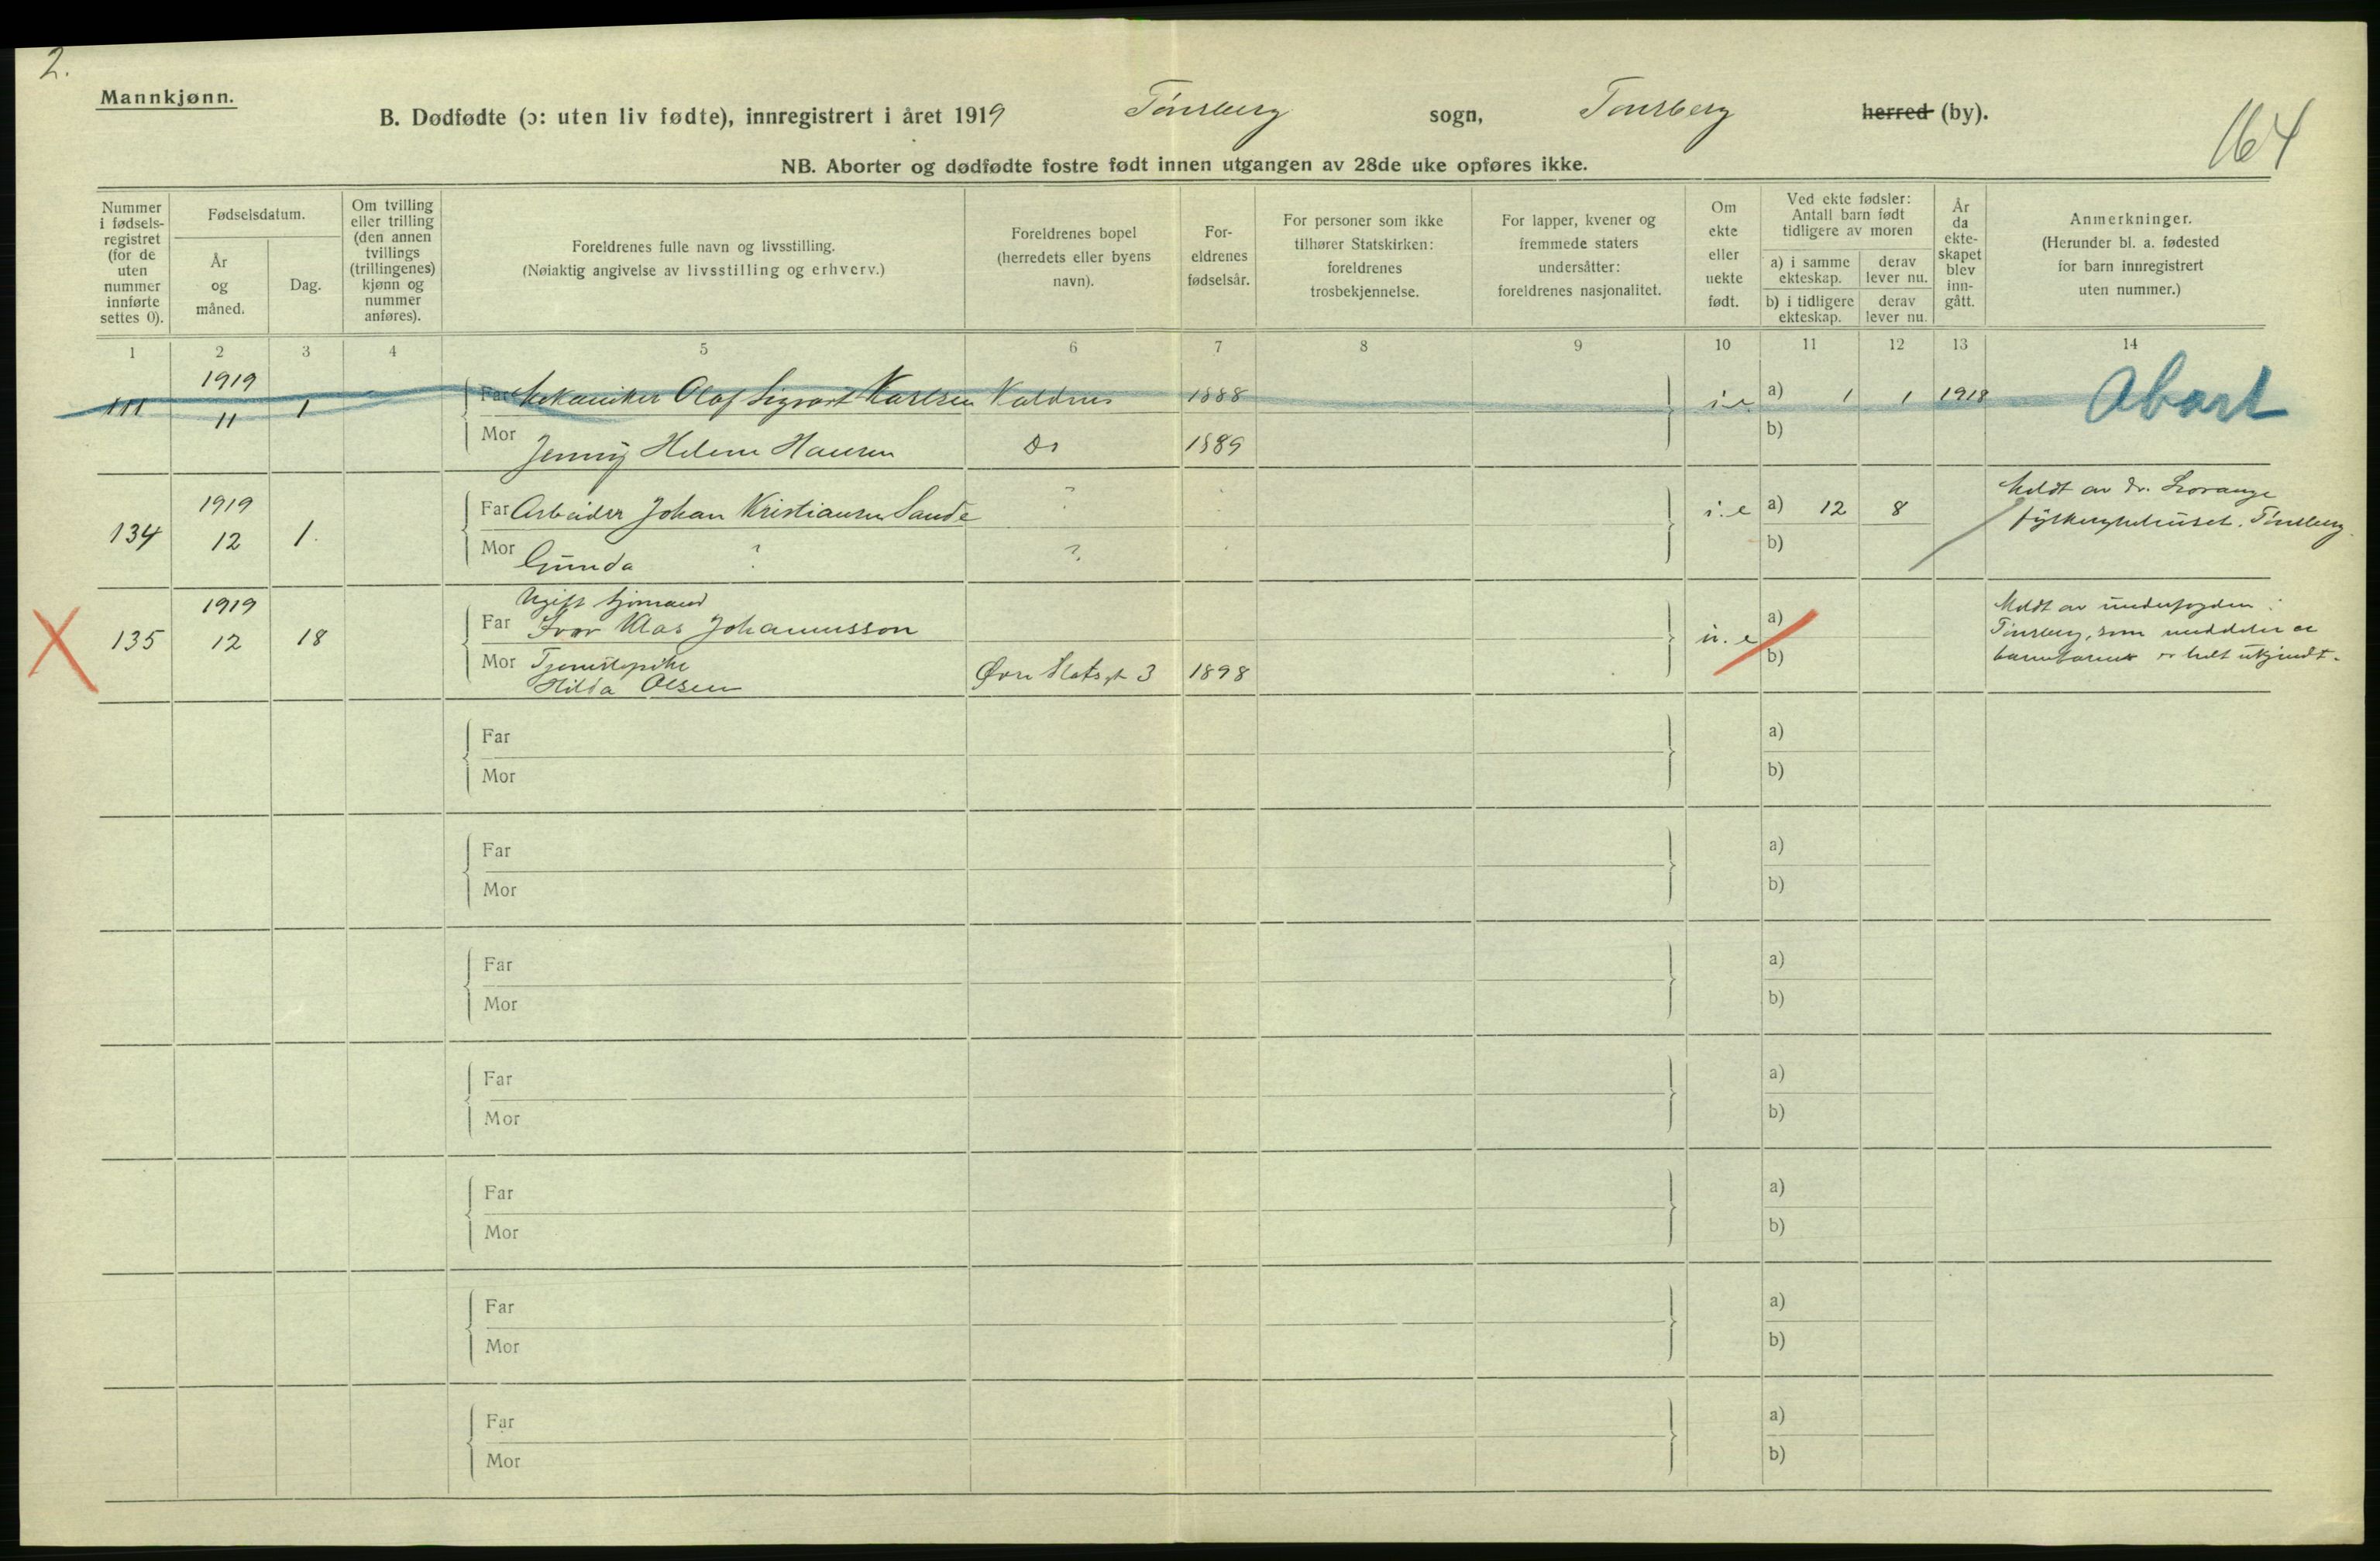 2.
Mannkjønn.
B. Dødfødte (ɔ: uten liv fødte), innregistrert i året 1919 Tønsberg sogn, Tønsberg herred (by).
164
NB. Aborter og dødfødte fostre født innen utgangen av 28de uke opføres ikke.
Nummer i fødsels- registret (for de uten nummer innførte settes 0).
Fødselsdatum.
År og måned.
Dag.
Om tvilling eller trilling (den annen tvillings (trillingenes) kjønn og nummer anføres).
Foreldrenes fulle navn og livsstilling.
(Nøiaktig angivelse av livsstilling og erhverv.)
Foreldrenes bopel (herredets eller byens navn).
For- eldrenes fødselsår.
For personer som ikke tilhører Statskirken: foreldrenes trosbekjennelse.
For lapper, kvener og fremmede staters undersåtter: foreldrenes nasjonalitet.
Om ekte eller uekte født.
Ved ekte fødsler: Antall barn født tidligere av moren
a) i samme ekteskap.
derav lever nu.
b) i tidligere ekteskap.
derav lever nu.
År da ekte- skapet blev inn- gått.
Anmerkninger.
(Herunder bl. a. fødested for barn innregistrert uten nummer.)
1 2 3 4 5 6 7 8 9 10 11 12 13 14
1919
111 11 1 Far Mekaniker Olaf Sigvart Karlsen Kaldnes 1888 i.e. a) 1 1 1918 Abort
Mor Jenny Helene Hansen Do 1889 b)
1919
134 12 1. Far Arbeider Johan Kristiansen Sande ? i. e a) 12 8 Meldt av dr. Lorange
Mor Gunda ? ? b) fylkessykehuset. Tønsberg
1919 Ugift sjømand
135 12 18 Far Klas Johannesson u. e a) Meldt av
Mor Tjenestepike b) Tønsberg, som meddeler at
Hilda Olsen Øvre Slotsgt 3 1898 barnefaren er helt ukjendt.
Far a)
Mor b)
Far a)
Mor b)
Far a)
Mor b)
Far a)
Mor b)
Far a)
Mor b)
Far a)
Mor b)
Far a)
Mor b)